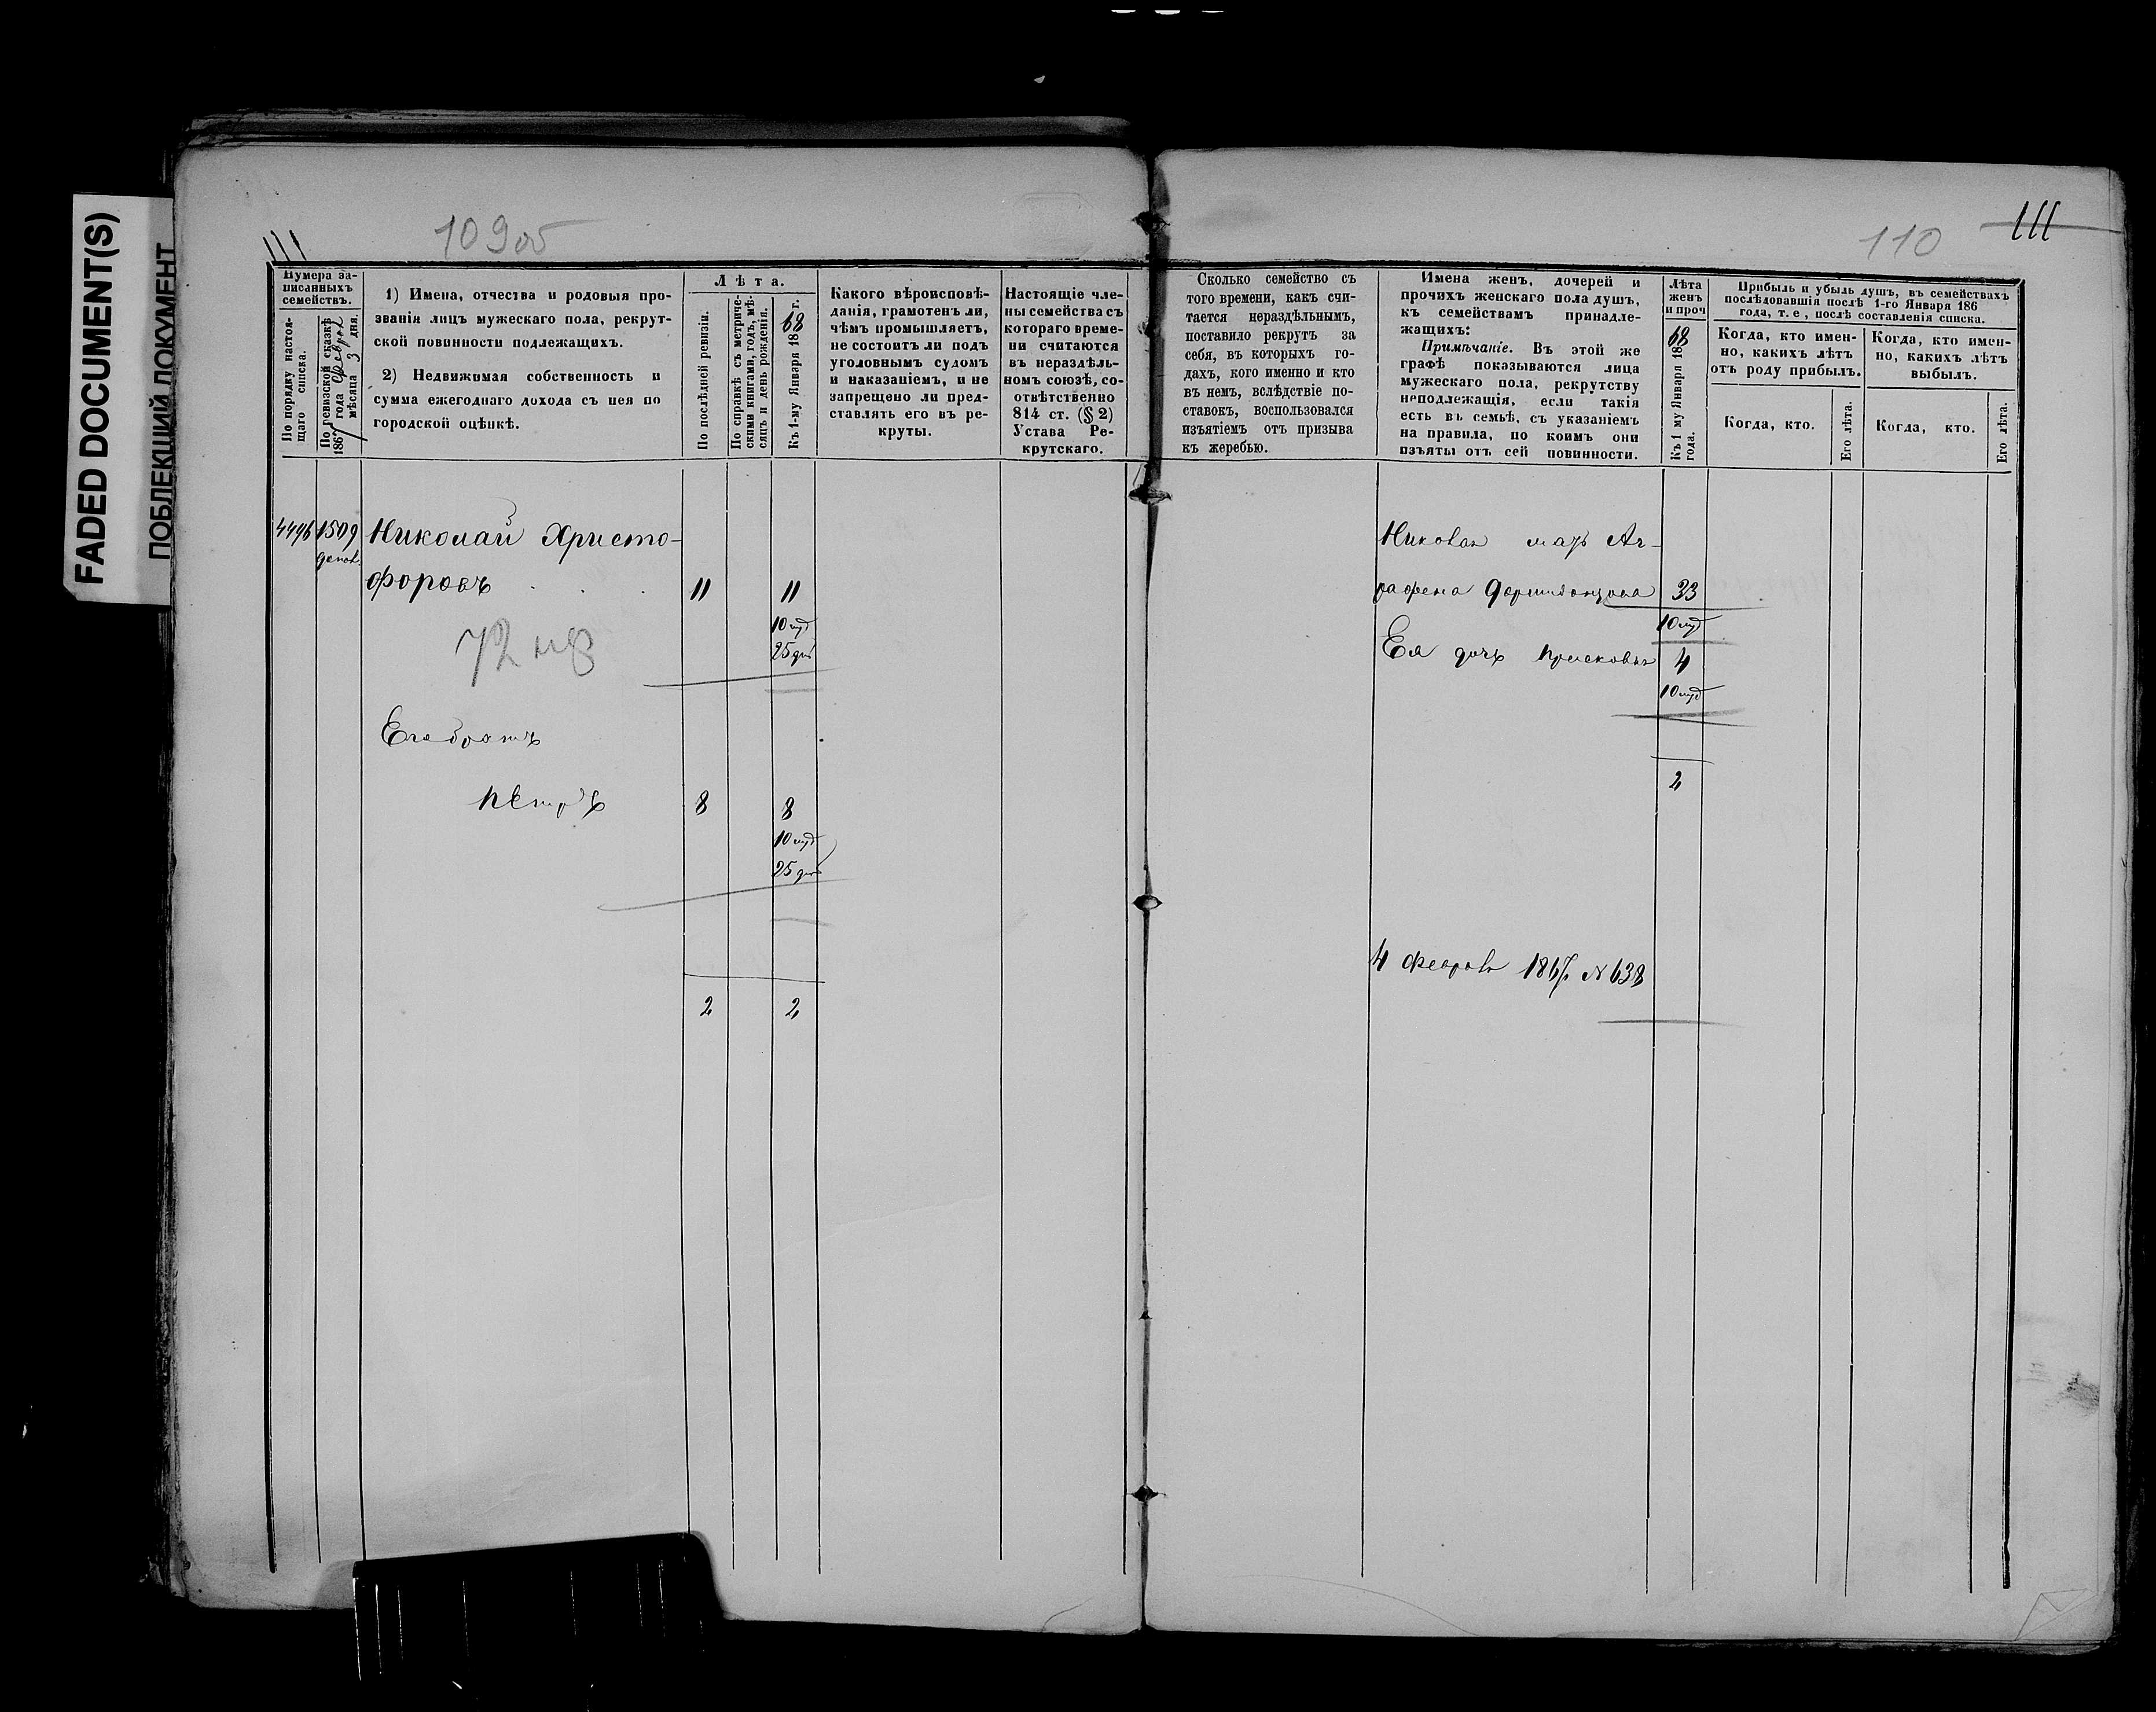 FADED DOCUMENT(S)
ПОБЛЕКШИЙ ДОКУМЕНТ
111
109об
110
111
Нумера за-
писанныхъ
семействъ.
По порядку настоя-
щаго списка.
По ревизской сказкѣ
1867 года Феврал
мѣсяца 3 дня.
1) Имена, отчества и родовыя про-
званія лицъ мужескаго пола, рекрут-
ской повинности подлежащихъ.
2) Недвижимая собственность и
сумма ежегоднаго дохода съ нея по
городской оцѣнкѣ.
Лѣта.
По послѣдней ревизіи.
По справкѣ съ метриче-
скими книгами, годъ, мѣ-
сяцъ и день рожденія.
Къ 1-му Января 1868 г.
Какого вѣроисповѣ-
данія, грамотенъ ли,
чѣмъ промышляетъ,
не состоитъ ли подъ
уголовнымъ судомъ
и наказаніемъ, и не
запрещено ли пред-
ставлять его въ ре-
круты.
Настоящіе чле-
ны семейства съ
котораго време-
ни считаются
въ нераздѣль-
номъ союзѣ, со-
отвѣтственно
814 ст. (§ 2)
Устава Ре-
крутскаго.
Сколько семейство съ
того времени, какъ счи-
тается нераздѣльнымъ,
поставило рекрутъ за
себя, въ которыхъ го-
дахъ, кого именно и кто
въ немъ, вслѣдствіе по-
ставокъ, воспользовался
изъятіемъ отъ призыва
къ жеребью.
Имена женъ, дочерей и
прочихъ женскаго пола душъ,
къ семействамъ принадле-
жащихъ:
Примѣчаніе. Въ этой же
графѣ показываются лица
мужескаго пола, рекрутству
неподлежащія, если такія
есть въ семьѣ, съ указаніемъ
на правила, по коимъ они
изъяты отъ сей повинности.
Лѣта
женъ
и проч
Къ 1 му Января 1868
года.
Прибыль и убыль душъ, въ семействахъ
послѣдовавшія послѣ 1-го Января 186
года, т. е, послѣ составленія списка.
Когда, кто имен-
но, какихъ лѣтъ
отъ роду прибылъ.
Когда, кто имен-
но, какихъ лѣтъ
выбылъ.
Когда, кто.
Его лѣта.
Когда, кто.
Его лѣта.
4496 1509 Николай Христо-
форовъ 11 11
10
25
72
Его братъ
Петръ 8 8
10
25
2 2
мать Аг-
рафена 33
10
Ея дочь 4
10
2
4 Февраля 1867 № 638